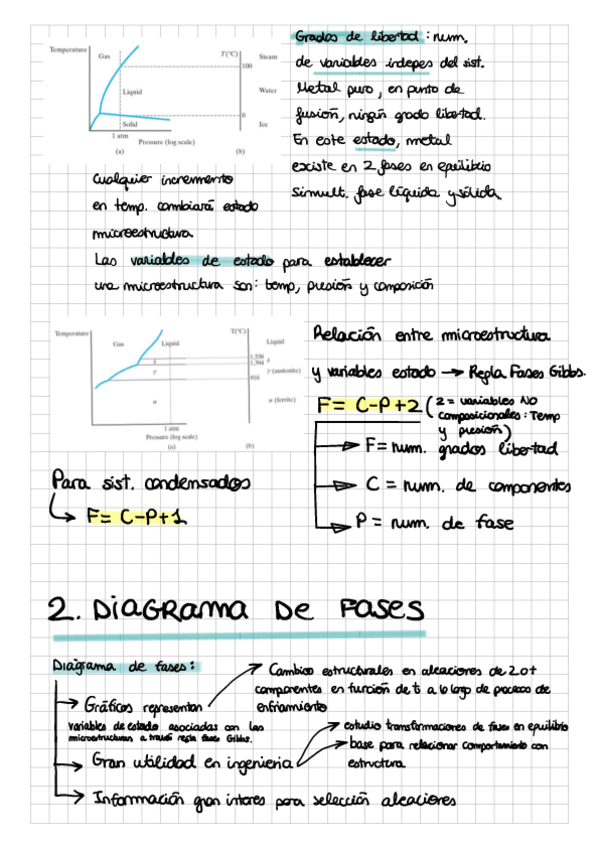 Grados de libertad: num.
de variables indepes del sist.
Metal puro, en punto de
fusión, ningún grado libertad.
En este estado, metal
existe en 2 fases en equilibrio
simult. fase líquida y sólida
Temperature
Gas
Liquid
Solid
1 atm
Pressure (log scale)
(a)
T(°C)
100
0
Steam
Water
Ice
(b)
Cualquier incremento
en temp. cambiará estado
microestructura
Las variables de estado para establecer
una microestructura son: temp, presión y composición
Temperature
Gas
Liquid
δ
γ
α
1 atm
Pressure (log scale)
(a)
T(°C)
1,538
1,394
910
Liquid
δ
γ (austenite)
α (ferrite)
(b)
Relación entre microestructura
y variables estado → Regla Fases Gibbs.
F= C-P+2 (2 = variables NO
composicionales: Temp
y presión)
F= num. grados libertad
C = num. de componentes
P = num. de fase
Para sist. condensados
F= C-P+1
2. DIAGRAMA DE FASES
Diagrama de fases:
Cambios estructurales en aleaciones de 2 o +
componentes en función de t a lo largo de procesos de
enfriamiento
Gráficos representan
variables de estado asociadas con las
microestructuras a través regla fases Gibbs.
estudio transformaciones de fases en equilibrio
base para relacionar comportamiento con
estructura
Gran utilidad en ingeniería
Información gran interes para selección aleaciones